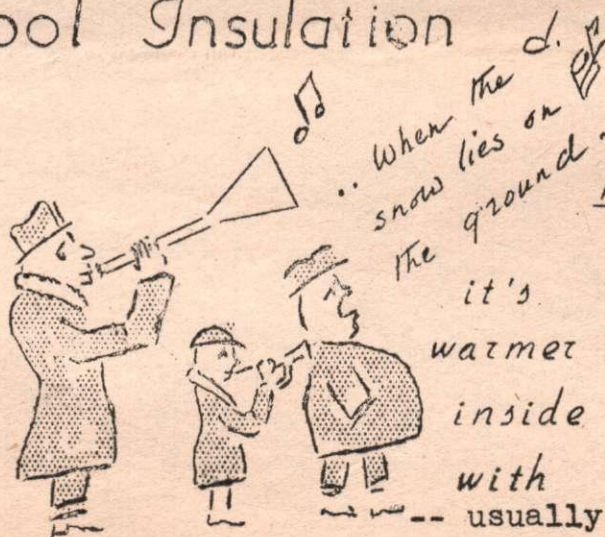 ool Insulation d.
.. When the
snow lies on
the ground
it's
warmer
inside
with
-- usually